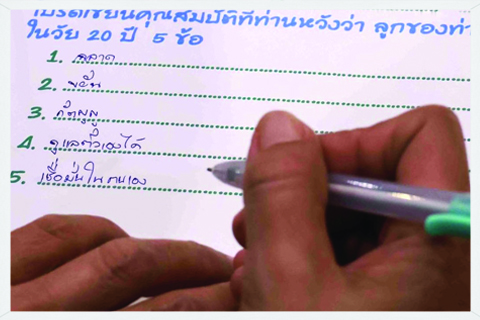 โปรดเขียนคุณสมบัติที่ท่านหวังว่า ลูกของท่า
ในวัย 20 ปี 5 ข้อ
1. ฉลาด
2. ขยัน
3. กตัญญู
4. ดูแลตัวเองได้
5. เชื่อมั่นในตนเอง